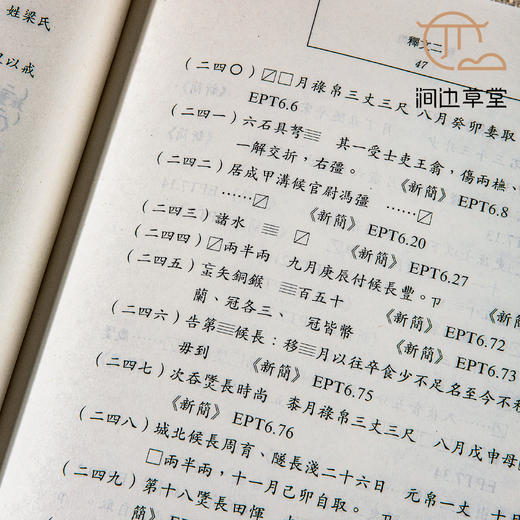 姓梁氏
以戒
澗边草堂
釋文二
47
(二四〇)〼□月祿帛三丈三尺 八月癸卯妻取
EPT6.6
(二四一)六石具弩𝍤 其一受士吏王翕,傷兩撫、
一解交折,右彊。 《新簡》EPT6.8
(二四二)居成甲溝候官尉馮彊 ……〼
……〼 《新簡》EPT6.20
(二四三)諸水 𝍤 〼 《新簡》EPT6.27
(二四四)〼兩半兩 九月庚辰付候長豐。卩
(二四五)䖟矢銅鍭 𝍤百五十 《新簡》EPT6.72
蘭、冠各三、 冠皆幣 《新簡》EPT6.73
(二四六)告第𝍤候長:移𝍤月以往卒食少不足名至今不
毋到 《新簡》EPT6.75
(二四七)次吞隧長時尚 桼月祿帛三丈三尺 八月戊申母
《新簡》EPT6.76
(二四八)城北候長周育、隧長淺二十六日 元帛一丈 十
□兩半兩,十一月己卯自取。 卩
(二四九)第十八隧長田惲
《新簡》EPT